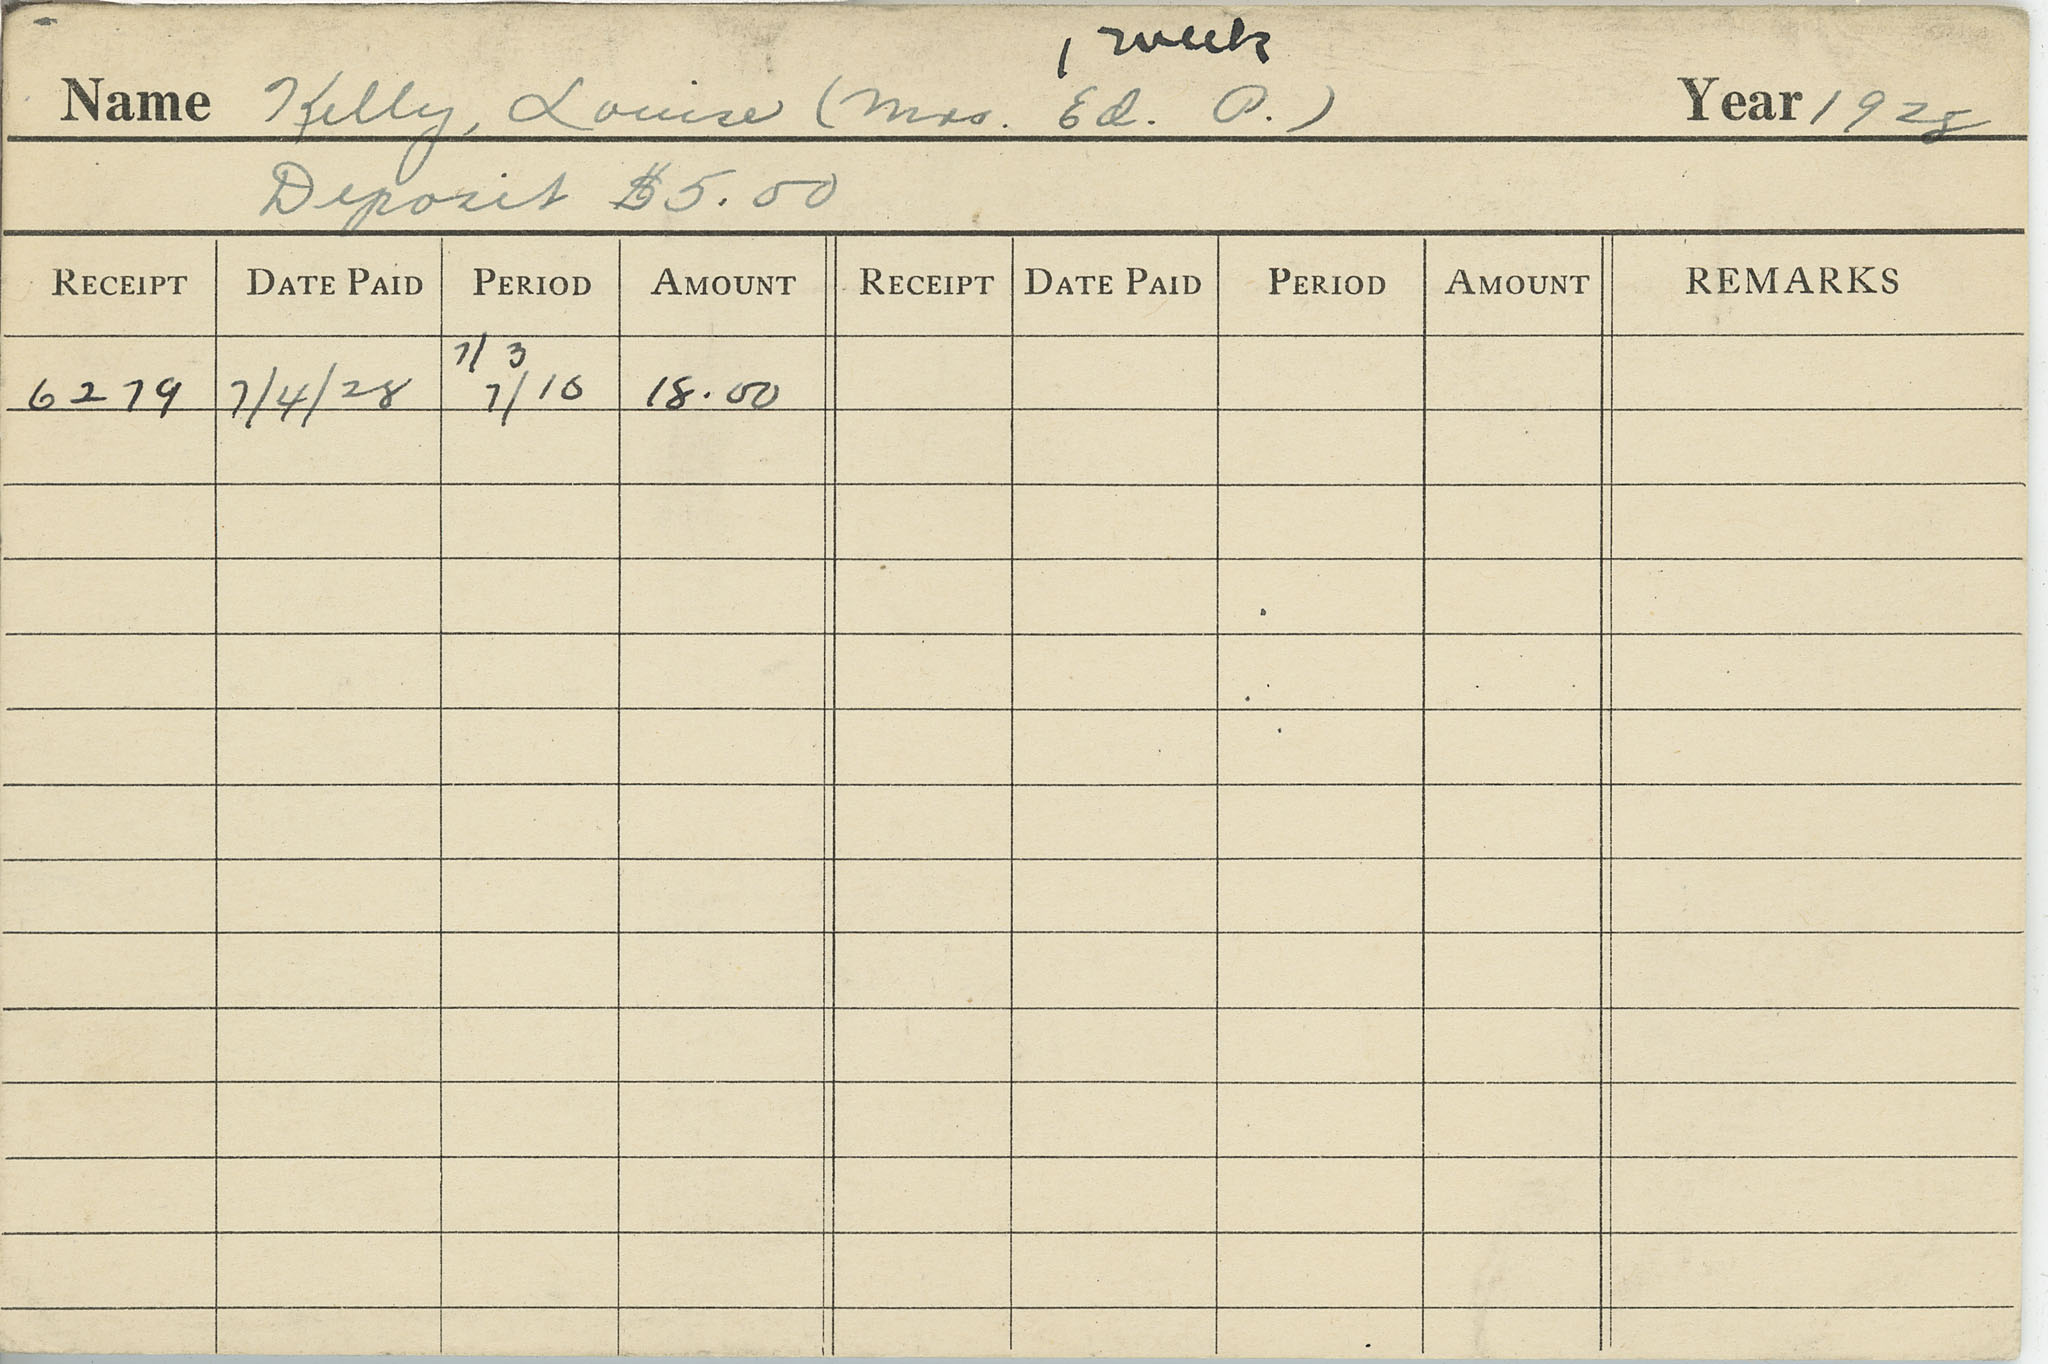 1 week
Name Kelly, Louise (Mrs. Ed. P.) Year 1928
Deposit $5.00
RECEIPT DATE PAID PERIOD AMOUNT RECEIPT DATE PAID PERIOD AMOUNT REMARKS
7/3
6279 7/4/28 7/10 18.00